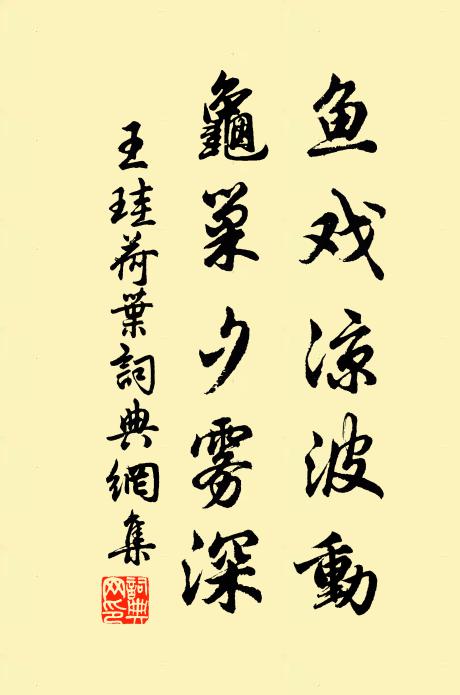 鱼戏凉波動
龜巢夕雾深
王珪荷葉詞典網集
詞典
网印